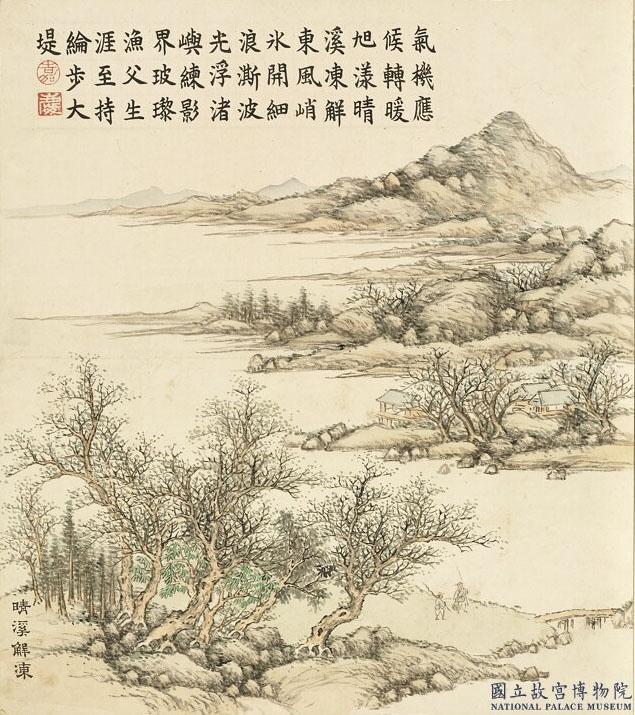 氣機應
候轉暖
旭漾晴
溪凍解
東風峭
氷開細
浪澌波
光浮渚
嶼練影
界玻瓈
漁父生
涯至持
綸步大
堤
嘉
慶
晴溪解凍
國立故宮博物院
NATIONAL PALACE MUSEUM